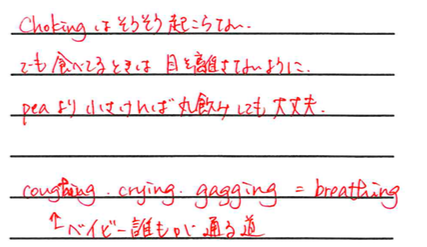 Chokingはそうそう起こらない.
でも食べてるときは目を離さないように.
peaより小さければ丸飲みしても大丈夫.
coughing. crying. gagging = breathing
↑ベイビー誰もが通る道